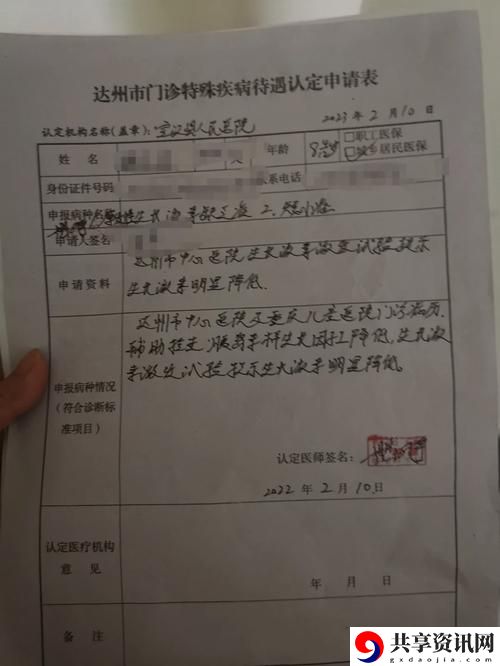 达州市门诊特殊疾病待遇认定申请表
认定机构名称(盖章): 宣汉县人民医院 2023 年 2 月 10 日
姓 名 年龄 8岁 □职工医保
城乡居民医保
身份证件号码 系电话
申报病种名称 生长激素缺乏症 2.
申请人签名
申请资料 达州市中心医院生长激素激发试验提示
生长激素明显降低.
达州市中心医院及重庆儿童医院门诊病历.
辅助检查:胰岛素样生长因子降低,生长激
素激发试验提示生长激素明显降低。
申报病种情况
(符合诊断标
准项目)
认定医师签名:
2022 年 2 月 10 日
认定医疗机构
意 见
年 月 日
备 注
共享资讯网
gxdaojia.com